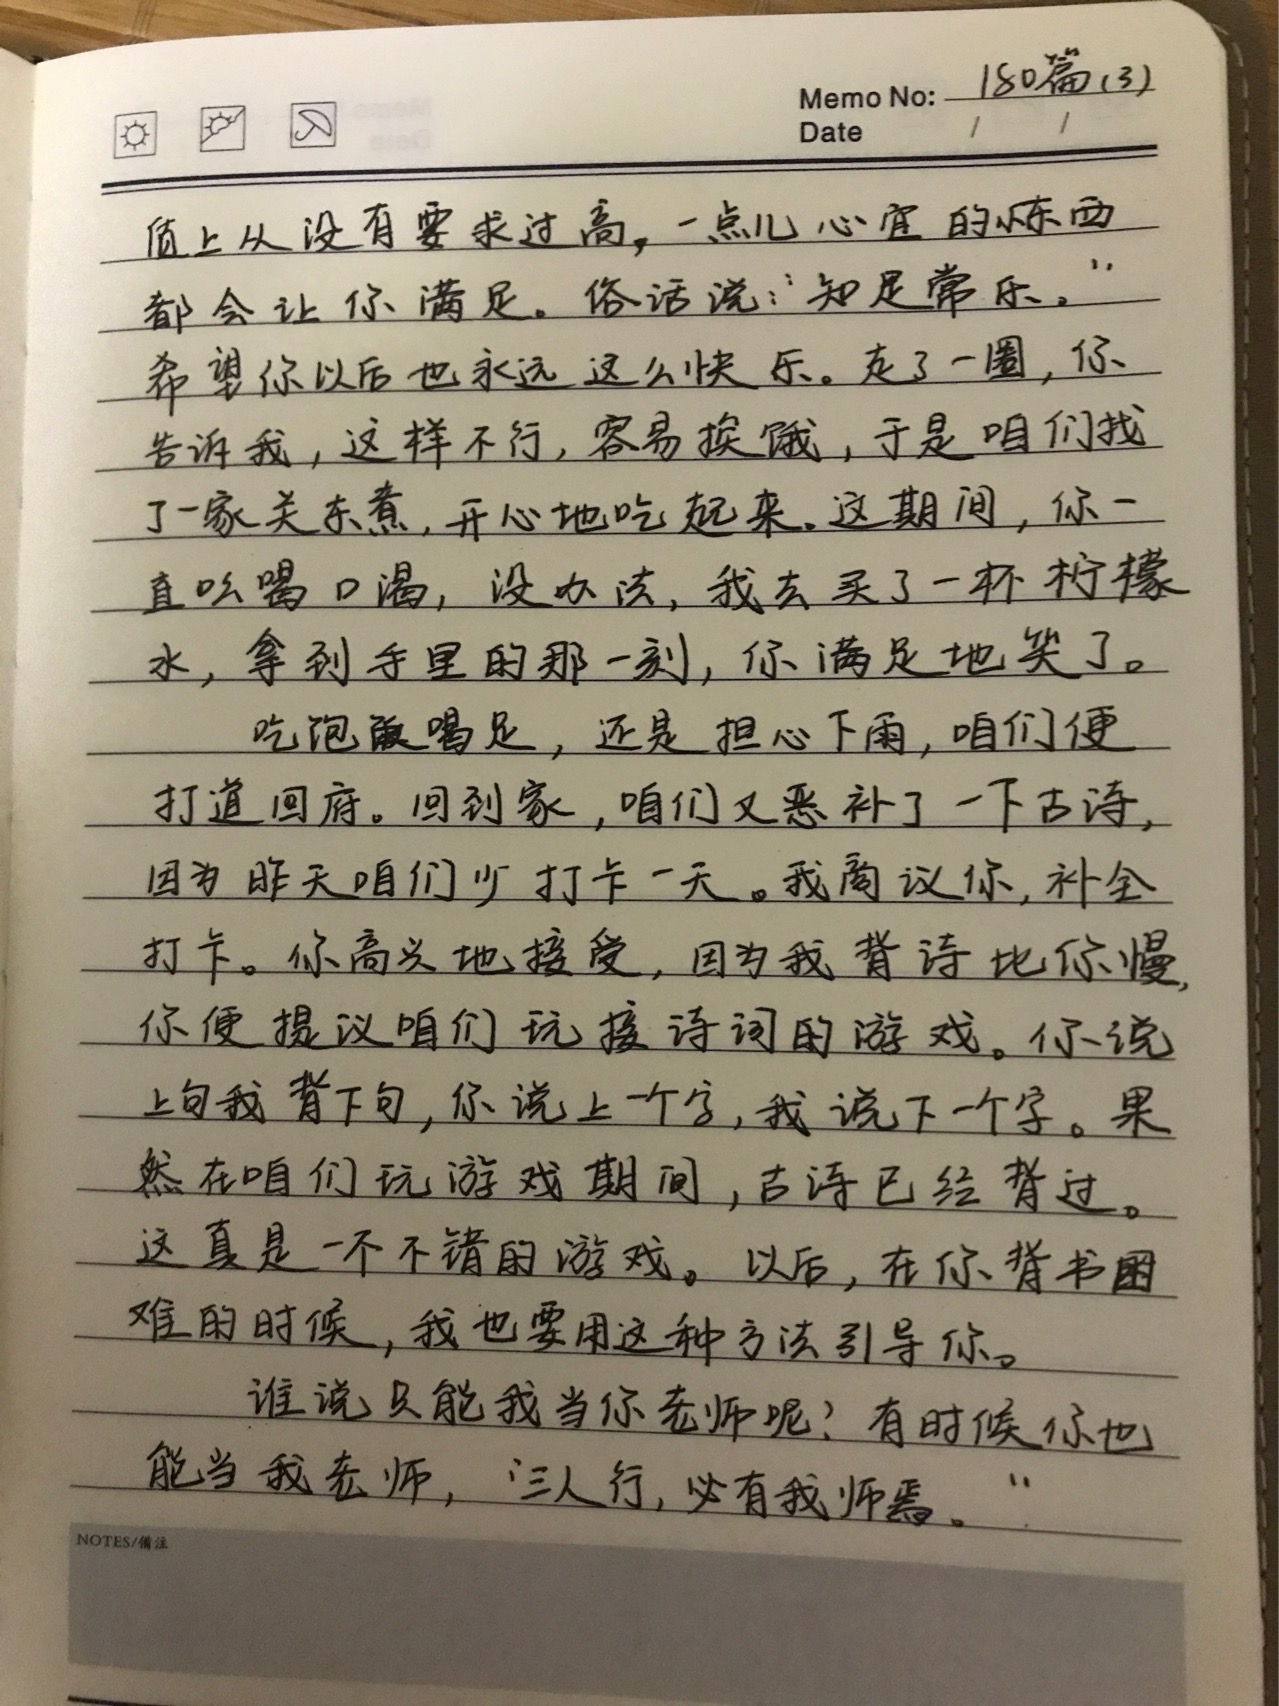 Memo No: 180篇(3)
Date / /
质上从没有要求过高,一点儿心宜的东西
都会让你满足。俗话说:“知足常乐。”
希望你以后也永远这么快乐。走了一圈,你
告诉我,这样不行,容易挨饿,于是咱们找
了一家关东煮,开心地吃起来。这期间,你一
直吆喝口渴,没办法,我去买了一杯柠檬
水,拿到手里的那一刻,你满足地笑了。
吃饱喝足,还是担心下雨,咱们便
打道回府。回到家,咱们又恶补了一下古诗,
因为昨天咱们少打卡一天。我商议你,补全
打卡。你高兴地接受,因为我背诗比你慢,
你便提议咱们玩接诗词的游戏。你说
上句我背下句,你说上一个字,我说下一个字。果
然在咱们玩游戏期间,古诗已经背过。
这真是一个不错的游戏。以后,在你背书困
难的时候,我也要用这种方法引导你。
谁说只能我当你老师呢?有时候你也
能当我老师,“三人行,必有我师焉。”
NOTES/備注